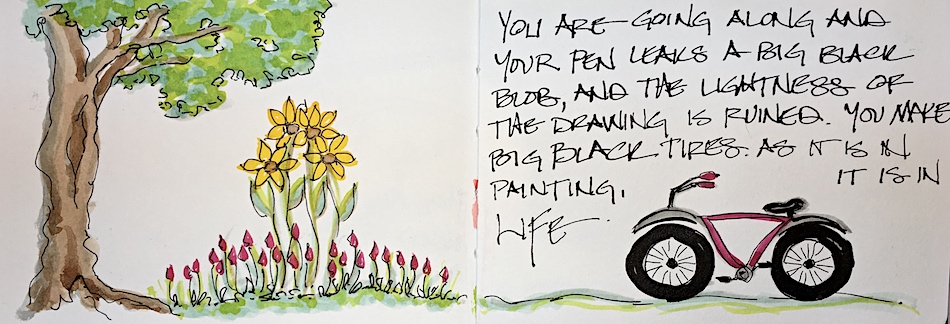 YOU ARE GOING ALONG AND
YOUR PEN LEAKS A BIG BLACK
BLOB, AND THE LIGHTNESS OF
THE DRAWING IS RUINED. YOU MAKE
BIG BLACK TIRES. AS IT IS IN
PAINTING, IT IS IN
LIFE.